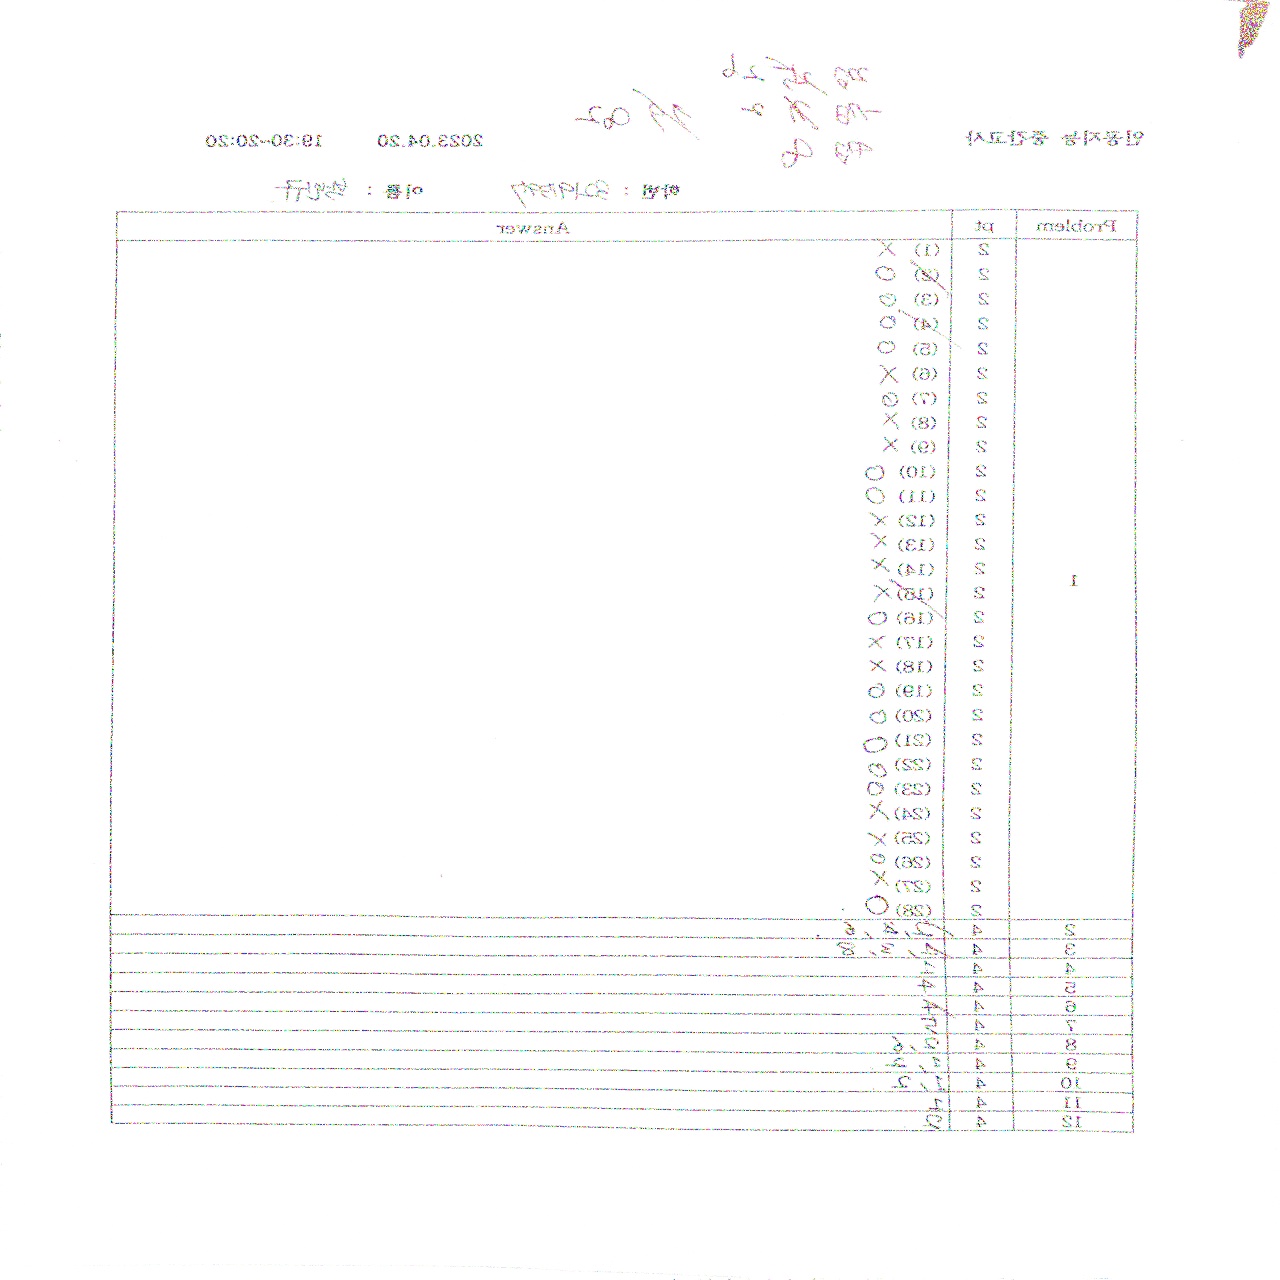 인공지능 중간고사 2023.04.20 19:30-20:20
학번 : 이름 :
Problem pt Answer
1
2 (1) X
2 (2) O
2 (3) O
2 (4) O
2 (5) O
2 (6) X
2 (7) O
2 (8) X
2 (9) X
2 (10) O
2 (11) O
2 (12) X
2 (13) X
2 (14) X
2 (15) X
2 (16) O
2 (17) X
2 (18) X
2 (19) O
2 (20) O
2 (21) O
2 (22) O
2 (23) O
2 (24) X
2 (25) X
2 (26) O
2 (27) X
2 (28) O
2 4
3 4
4 4
5 4
6 4
7 4
8 4
9 4
10 4
11 4
12 4